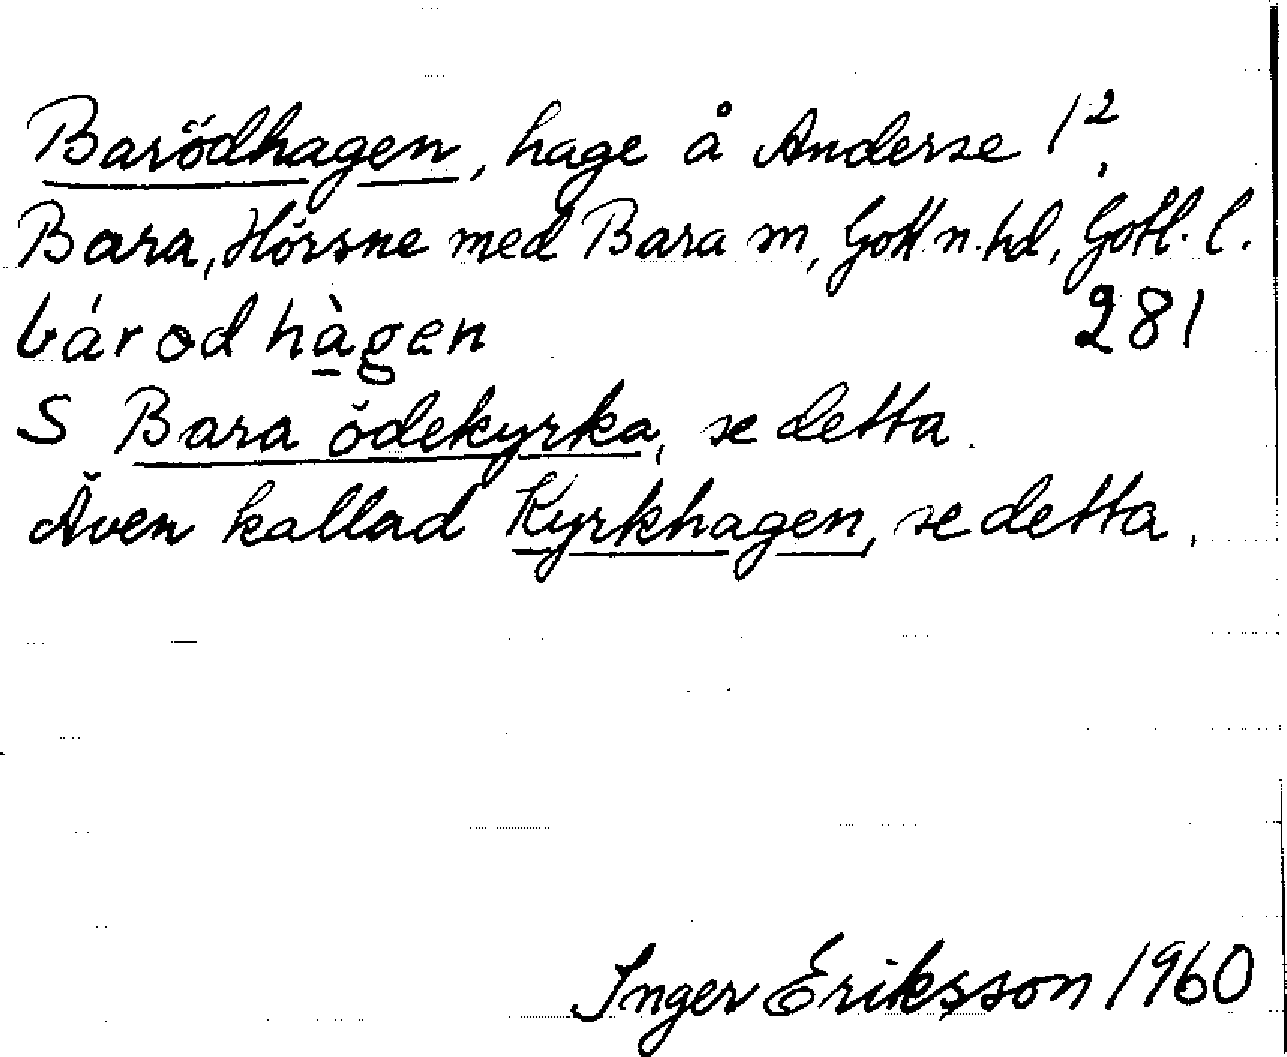 Barödhagen, hage å Anderse 1²,
Bara, Hörsne med Bara sn, Gotl. n. hd, Gotl. l.
bárod hàgen 281
S Bara ödekyrka, se detta.
Även kallad Kyrkhagen, se detta.
Inger Eriksson 1960